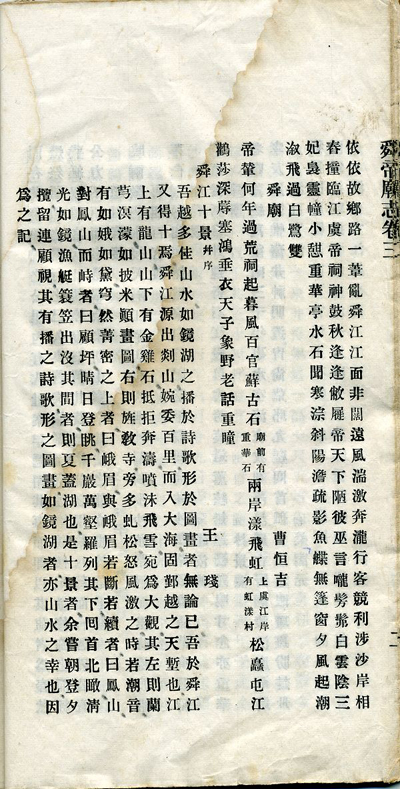 舜帝廟志卷三
依依故鄉路一葦亂舜江江面非闊遠風湍激奔瀧行客競利涉沙岸相
舂撞臨江虞帝祠神鼓秋逢逢敝屣帝天下陋彼巫言嚨髣髴白雲陰三
妃裊靈幢小憩重華亭水石聞寒淙斜陽澹疏影魚蝶無篷窗夕風起潮
溆飛過白鷺雙
舜廟 曹恒吉
帝輦何年過荒祠起暮風百官蘇古石廟前有重華石兩岸漾飛虹上虞江岸有虹漾村松蟸屯江
鸛莎深蓐塞鴻垂衣天子象野老話重瞳
舜江十景幷序 王琖
吾越多佳山水如鏡湖之播於詩歌形於圖畫者無論已吾於舜江
又得十焉舜江源出剡山婉委百里而入大海固鄞越之天塹也江
上有龍山山下有金雞石抵拒奔濤噴沫飛雪宛爲大觀其左則蘭
芎溟濛如披米顚畫圖右則旌教寺旁多虬松怒風激之時若潮音
有如娥如黛穹然菁密之上者曰峨眉與峨眉若斷若續者曰鳳山
對鳳山而峙者曰顧坪晴日登眺千巖萬壑羅列其下囘首北瞰清
光如鏡漁艇簑笠出沒其間者則夏蓋湖也是十景者余嘗朝登夕
攬留連顧視其有播之詩歌形之圖畫如鏡湖者亦山水之幸也因
爲之記